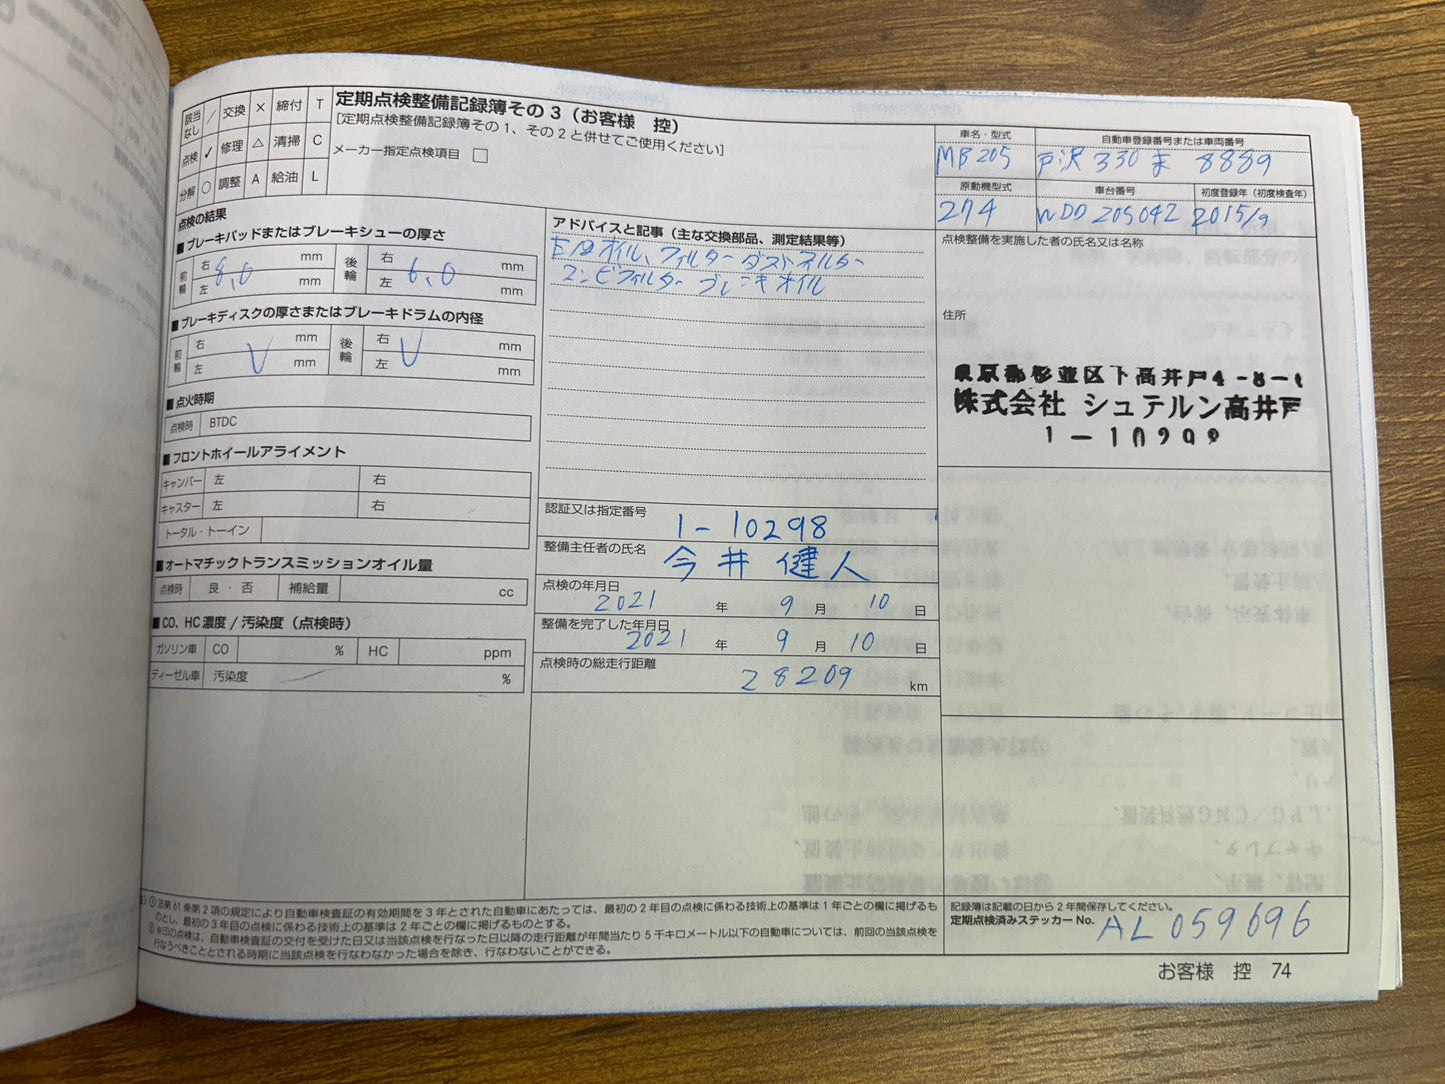 該当なし ／ 交換 × 締付 T
点検 ✓ 修理 △ 清掃 C
分解 ○ 調整 A 給油 L
定期点検整備記録簿その3（お客様　控）
[定期点検整備記録簿その1、その2と併せてご使用ください]
メーカー指定点検項目 □
車名・型式
MB205
自動車登録番号または車両番号
330 8889
原動機型式
274
車台番号
WDD 205042
初度登録年（初度検査年）
2015/9
点検の結果
■ブレーキパッドまたはブレーキシューの厚さ
前輪 右 8.0 mm 後輪 右 6.0 mm
左 mm 左 mm
■ブレーキディスクの厚さまたはブレーキドラムの内径
前輪 右 mm 後輪 右 mm
左 ✓ mm 左 ✓ mm
■点火時期
点検時 BTDC
■フロントホイールアライメント
キャンバー 左 右
キャスター 左 右
トータル・トーイン
■オートマチックトランスミッションオイル量
点検時 良・否 補給量 cc
■CO、HC濃度/汚染度（点検時）
ガソリン車 CO % HC ppm
ディーゼル車 汚染度 %
アドバイスと記事（主な交換部品、測定結果等）
オイル、フィルター ダストフィルター
コンビフィルター ブレーキオイル
認証又は指定番号
1-10298
整備主任者の氏名
今井 健人
点検の年月日
2021 年 9 月 10 日
整備を完了した年月日
2021 年 9 月 10 日
点検時の総走行距離
28209 km
点検整備を実施した者の氏名又は名称
住所
東京都杉並区下高井戸4-8-1
株式会社 シュテルン高井戸
注）①法第61条第2項の規定により自動車検査証の有効期間を3年とされた自動車にあたっては、最初の2年目の点検に係わる技術上の基準は1年ごとの欄に掲げるも
のとし、最初の3年目の点検に係わる技術上の基準は2年ごとの欄に掲げるものとする。
②※印の点検は、自動車検査証の交付を受けた日又は当該点検を行なった日以降の走行距離が年間当たり5千キロメートル以下の自動車については、前回の当該点検を
行なうべきこととされる時期に当該点検を行なわなかった場合を除き、行なわないことができる。
記録簿は記載の日から2年間保存してください。
定期点検済みステッカーNo. AL059696
お客様　控　74